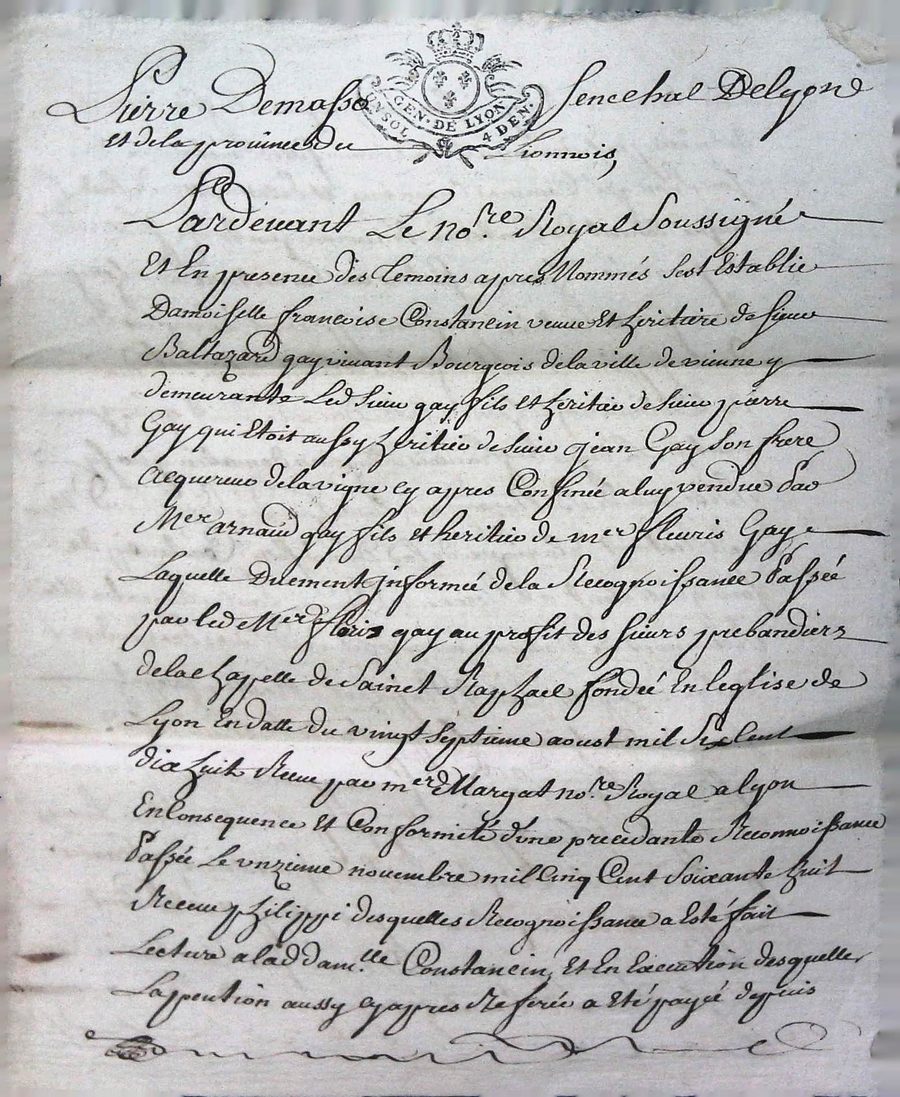 Pierre Demasso Senechal Delyon
GEN. DE LYON
UN SOL 4 DEN.
et de la province du Lionnois,
Pardevant Le no.re Royal Soussigné
Et En presence des Temoins apres Nommés Sest Establie
Damoiselle francoise Constancin veuve Et heritiere de sieur
Baltazard gay vivant Bourgeois de la ville de vienne y
demeurante Led sieur gay fils et heritier de sieur pierre
Gay qui Etoit aussy heritier de sieur jean Gay son frere
acquereur de la vigne cy apres Confinée a luy vendue Par
Mer arnaud gay fils et heritier de mer fleuris Gay
Laquelle Duement jnformée de la Recognoissance Passée
par led Mer floris gay au profit des sieurs prebandiers
de la chapelle de Sainct Raphael fondée En leglise de
Lyon En datte du vingt septieme aoust mil Six Cent
dix huit Receue par mer Margat no.re Royal a lyon
En Consequence et Conformité d'une precedante Reconnoissance
Passée Le unzieme novembre mil Cinq Cent Soixante huit
Receue philippi desquelles Recognoissance a Esté fait
Lecture a lad dam.lle Constancin, Et En Execution desquelles
La pention aussy cy apres Referée a Eté payée depuis